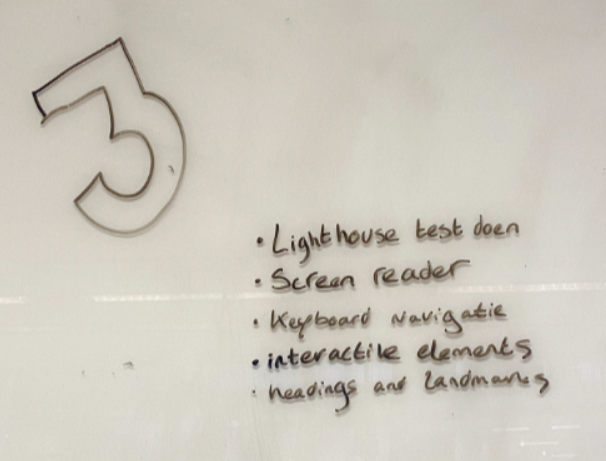 3
• Lighthouse test doen
• Screen reader
• Keyboard Navigatie
• interactive elements
• headings and landmarks